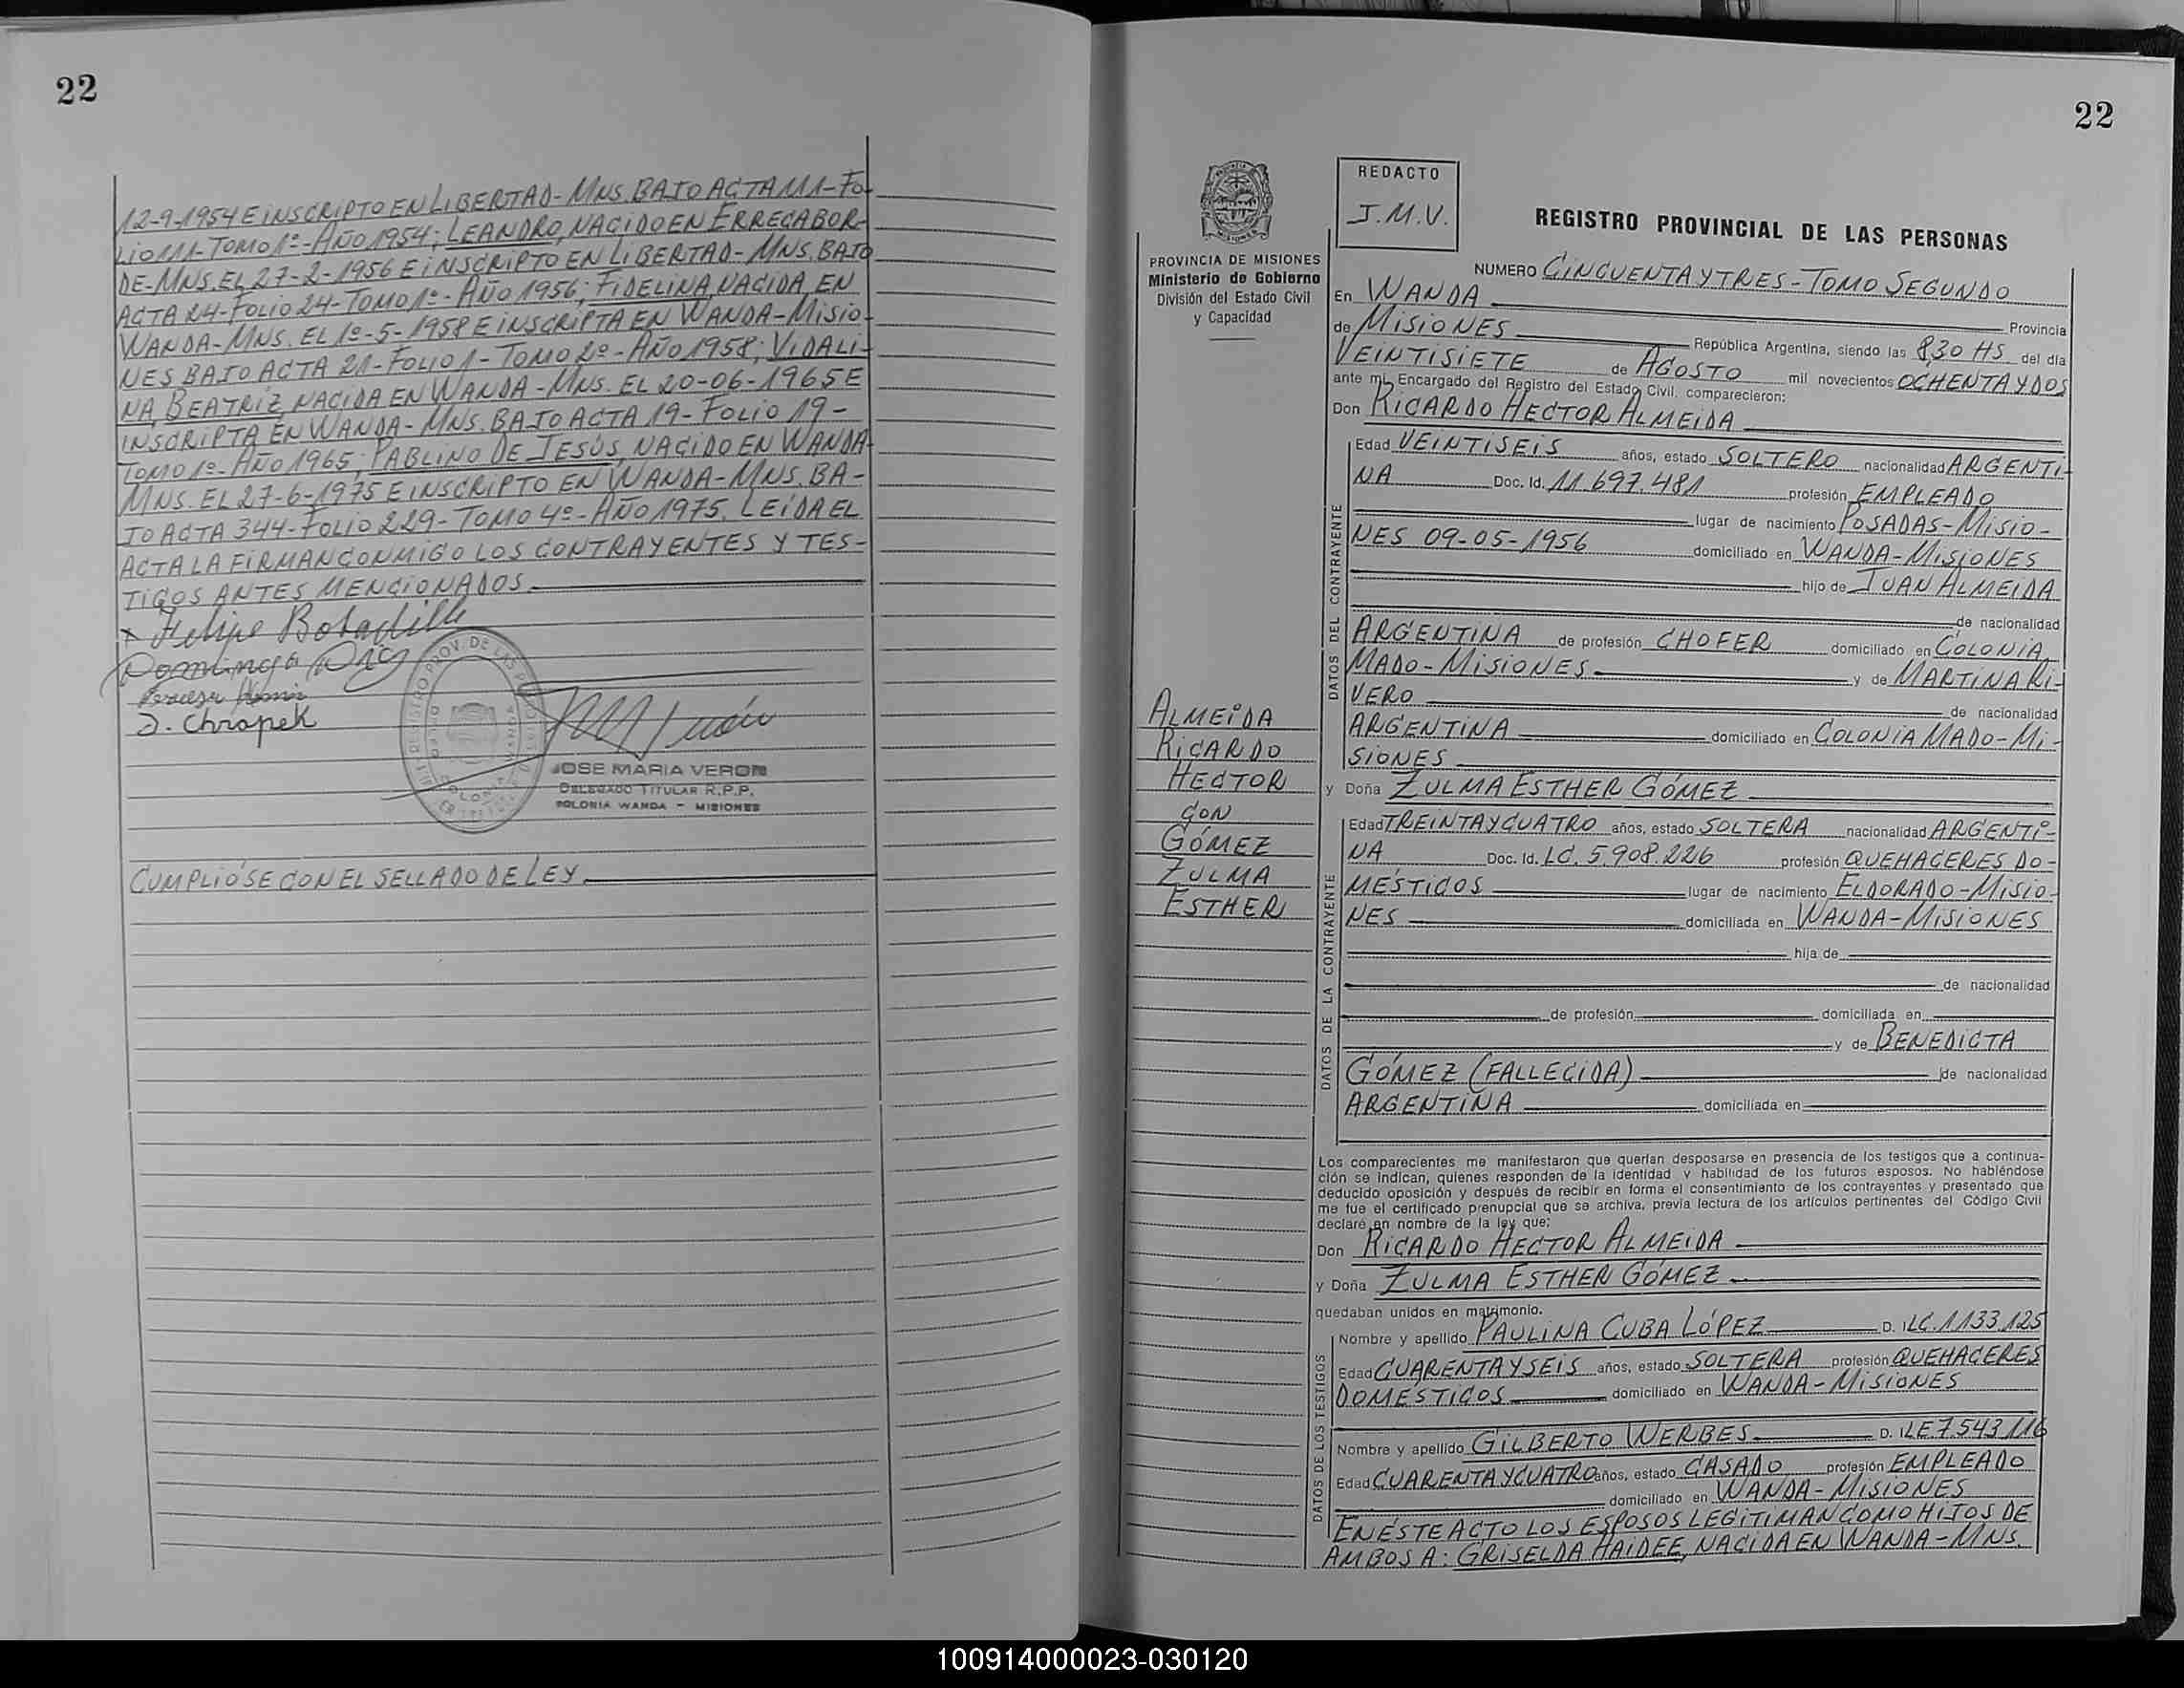 22
12-9-1954 E iNSCRiPTO EN LiBERTAD-MNS. BAJO ACTA 111-Fo-
LiO 111-TOMO 1º-AÑO 1954; LEANDRO, NACiDO EN ERRECABOR-
DE-MNS. EL 27-2-1956 E iNSCRiPTO EN LiBERTAD-MNS. BAJO
ACTA 24-FOLiO 24-TOMO 1º-AÑO 1956; FiDELiNA, NACiDA EN
WANDA-MNS. EL 1º-5-1958 E iNSCRiPTA EN WANDA-MiSiO-
NES BAJO ACTA 21-FOLiO 1-TOMO 2º-AÑO 1958; ViDALi-
NA BEATRiZ, NACiDA EN WANDA-MNS. EL 20-06-1965 E
iNSCRiPTA EN WANDA-MNS. BAJO ACTA 19-FOLiO 19-
TOMO 1º-AÑO 1965; PABLiNO DE JESÚS, NACiDO EN WANDA
MNS. EL 27-6-1975 E iNSCRiPTO EN WANDA-MNS. BA-
JO ACTA 344-FOLiO 229-TOMO 4º-AÑO 1975. LEiDA EL
ACTA LA FiRMAN CONMiGO LOS CONTRAYENTES Y TES-
TiGOS ANTES MENCiONADOS.
Felipe Bobadilla
Dominga
J. Chropek
JOSE MARIA VERON
DELEGADO TITULAR R.P.P.
COLONIA WANDA - MISIONES
CUMPLiÓSE CON EL SELLADO DE LEY.
22
PROVINCIA DE MISIONES
Ministerio de Gobierno
División del Estado Civil
y Capacidad
REDACTO
J.M.V.
ALMEiDA
RiCARDO
HECTOR
CON
GÓMEZ
ZULMA
ESTHER
REGISTRO PROVINCIAL DE LAS PERSONAS
NUMERO CiNCUENTA Y TRES-TOMO SEGUNDO
En WANDA Provincia
de MiSiONES República Argentina, siendo las 8,30 HS. del día
VEiNTiSiETE de AGOSTO mil novecientos OCHENTA Y DOS
ante mí, Encargado del Registro del Estado Civil, comparecieron:
Don RiCARDO HECTOR ALMEiDA
DATOS DEL CONTRAYENTE
Edad VEiNTiSEiS años, estado SOLTERO nacionalidad ARGENTi-
NA Doc. Id. 11.697.481 profesión EMPLEADO
lugar de nacimiento POSADAS-MiSiO-
NES 09-05-1956 domiciliado en WANDA-MiSiONES
hijo de JUAN ALMEiDA
de nacionalidad
ARGENTiNA de profesión CHOFER domiciliado en COLONiA
MADO-MiSiONES y de MARTiNA Ri-
VERO de nacionalidad
ARGENTiNA domiciliado en COLONiA MADO-Mi-
SiONES
y Doña ZULMA ESTHER GÓMEZ
DATOS DE LA CONTRAYENTE
Edad TREiNTA Y CUATRO años, estado SOLTERA nacionalidad ARGENTi-
NA Doc. Id. LC. 5.908.226 profesión QUEHACERES DO-
MÉSTiCOS lugar de nacimiento ELDORADO-MiSiO-
NES domiciliada en WANDA-MiSiONES
hija de
de nacionalidad
de profesión domiciliada en
y de BENEDiCTA
GÓMEZ (FALLECiDA) de nacionalidad
ARGENTiNA domiciliada en
Los comparecientes me manifestaron que querían desposarse en presencia de los testigos que a continua-
ción se indican, quienes responden de la identidad y habilidad de los futuros esposos. No habiéndose
deducido oposición y después de recibir en forma el consentimiento de los contrayentes y presentado que
me fue el certificado prenupcial que se archiva, previa lectura de los artículos pertinentes del Código Civil
declaré en nombre de la ley que:
Don RiCARDO HECTOR ALMEiDA
y Doña ZULMA ESTHER GÓMEZ
quedaban unidos en matrimonio.
DATOS DE LOS TESTIGOS
Nombre y apellido PAULiNA CUBA LÓPEZ D. I LC. 1133.125
Edad CUARENTA Y SEiS años, estado SOLTERA profesión QUEHACERES
DOMÉSTiCOS domiciliado en WANDA-MiSiONES
Nombre y apellido GiLBERTO WERBES D. I LE 7.543.116
Edad CUARENTA Y CUATRO años, estado CASADO profesión EMPLEADO
domiciliado en WANDA-MiSiONES
EN ÉSTE ACTO LOS ESPOSOS LEGiTiMAN COMO HiJOS DE
AMBOS A: GRiSELDA HAiDEE, NACiDA EN WANDA-MNS.
100914000023-030120